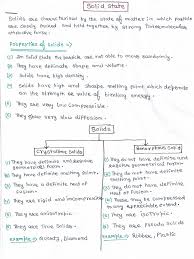 Solid State
Solids are characterised by the state of matter in which particles
are closely packed and held together by strong intermolecular
attractive force.
Properties of Solids :-
(1) In Solid state the particles are not able to move randomly.
(2) They have definite shape and volume.
(3) Solids have high density.
(4) Solids have high and sharp melting point which depends
on the strength or value of binding energy.
(5) They are very low compressible.
(6) They show very slow diffusion.
Solids
Crystalline Solids
(1) They have definite and
geometric form.
(2) They have definite melting point.
(3) They have a definite heat of
fusion.
(4) They are rigid and incompressible
(5) They are anisotropic.
(6) They are true Solids
example → Diamond
Amorphous Solids
(1) They do not have definite and
geometric form.
(2) They do not have definite
melting point.
(3) They do not have definite
heat of fusion.
(4) They are
(5) They are isotropic.
(6) They are Pseudo Solids
example → Rubber, Plastic